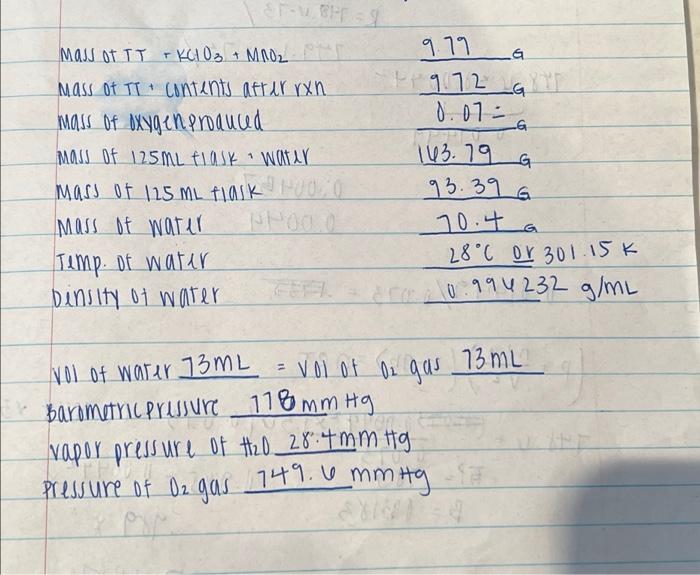 Mass of TT + KClO3 + MnO2 9.79 G
Mass of TT + contents after rxn 9.72 G
Mass of oxygen produced 0.07 = G
Mass of 125mL flask + water 163.79 G
Mass of 125 mL flask 93.39 G
Mass of water 70.4 G
Temp. of water 28°C or 301.15 K
Density of water 0.996232 g/mL
Vol of water 73mL = Vol of O2 gas 73mL
Barometric pressure 778 mm Hg
vapor pressure of H2O 28.4 mm Hg
Pressure of O2 gas 749.6 mmHg